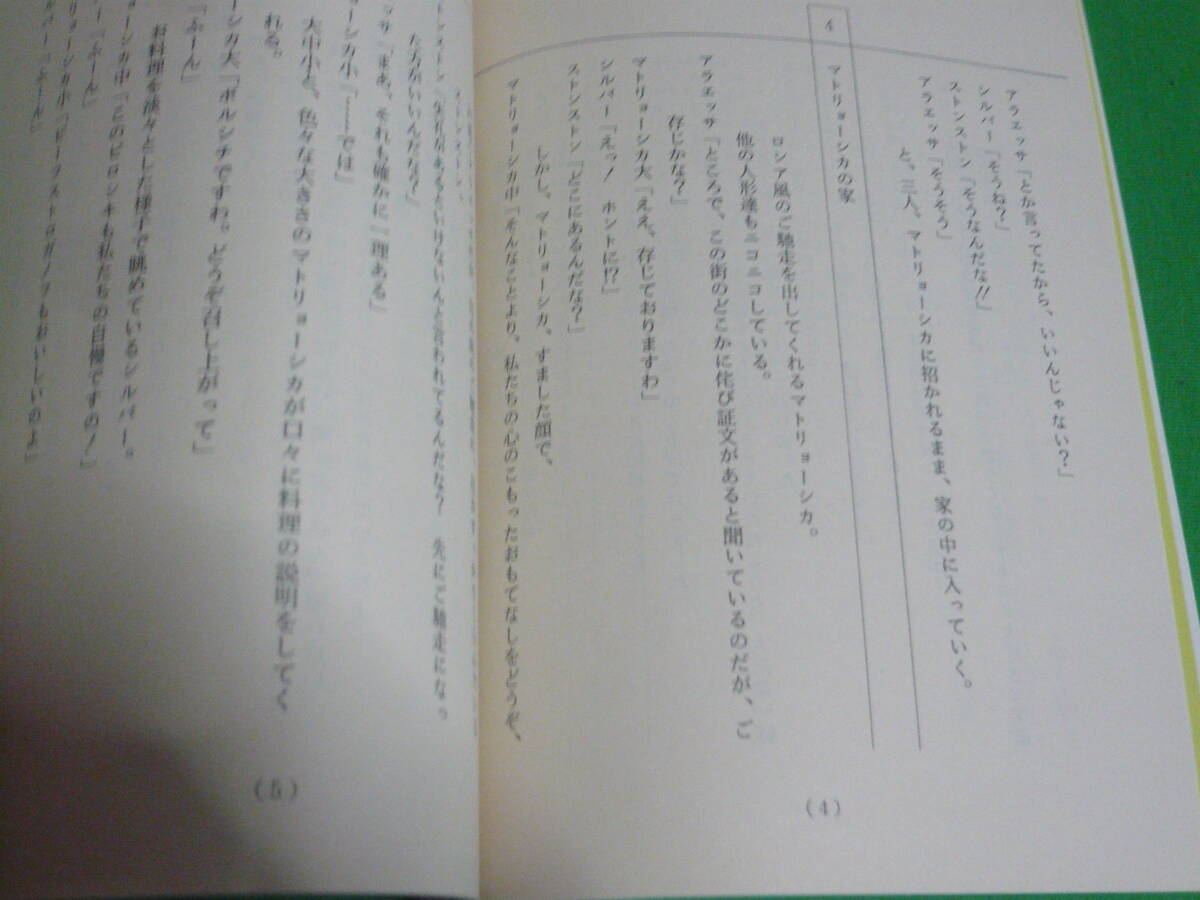 アラエッサ『とか言ってたから、いいんじゃない?』
シルバー『そうね?』
ストンストン『そうなんだな!!』
アラエッサ『そうそう』
と、三人、マトリョーシカに招かれるまま、家の中に入っていく。
4 マトリョーシカの家
ロシア風のご馳走を出してくれるマトリョーシカ。
他の人形達もニコニコしている。
アラエッサ『ところで、この街のどこかに侘び証文があると聞いているのだが、ご
存じかな?』
マトリョーシカ大『ええ、存じておりますわ』
シルバー『えっ! ホントに!?』
ストンストン『どこにあるんだな?』
しかし、マトリョーシカ、すました顔で、
マトリョーシカ中『そんなことより、私たちの心のこもったおもてなしをどうぞ。
(4)
た方がいいんだな?』
ッサ『まあ、それも確かに一理ある』
ーシカ小『……では』
大中小と、色々な大きさのマトリョーシカが口々に料理の説明をしてく
れる。
ーシカ大『ボルシチですわ。どうぞ召し上がって』
『ふーん』
お料理を淡々とした様子で眺めているシルバー。
ョーシカ中『このピロシキも私たちの自慢ですの!』
ー『ふーん』
リョーシカ小『ビーフストロガノフもおいしいのよ』
ルバー『ふーん』
(5)